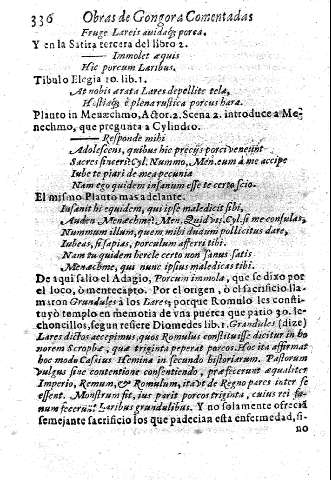 336 Obras de Gongora Comentadas
Fruge Lareis auidaq; porca.
Y en la Satira tercera del libro 2.
Immolet æquis
Hic porcum Laribus.
Tibulo Elegia 10. lib.1.
At nobis arata Lares depellite tela,
Hostiaq; è plena rustica porcus hara.
Plauto in Menæchmo, Actor. 2. Scena 2. introduce a Me-
nechmo, que pregunta a Cylindro.
Responde mihi
Adolescens, quibus hic precijs porci veneunt
Sacres sinceri? Cyl. Nummo, Men. eum à me accipe
Iube te piari de mea pecunia
Nam ego quidem insanum esse te certo scio.
El mismo Plauto mas adelante.
Insanit hi equidem, qui ipse maledicit sibi,
Auden Menæchme? Men. Quid vis. Cyl. si me consulas,
Nummum illum, quem mihi dudum pollicitus dare,
Iubeas, si sapias, porculum afferri tibi.
Nam tu quidem hercle certo non sanus satis
Menæchme, qui nunc ipsius maledicas tibi.
De aqui salio el Adagio, Porcum immola, que se dixo por
el loco, ò mentecapto. Por el origen, ò el sacrificio lla-
maron Grundules à los Lares, porque Romulo les consti-
tuyò templo en memoria de vna puerca que pario 30. le-
choncillos, segun refiere Diomedes lib. 1. Grundules (dize)
Lares dictos accepimus, quos Romulus constituisse dicitur in ho
norem Scrophæ, quæ triginta peperat porcos. Hoc ita affirmat
hoc modo Cassius Hemina in secundo historiarum. Pastorum
vulgus sine contentione consentiendo, præfecerunt æqualiter
Imperio, Remum, & Romulum, ita vt de Regno pares inter se
essent. Monstrum fit, sus parit porcos triginta, cuius rei fa-
num fecerunt Laribus grundulibus. Y no solamente ofrecia
semejante sacrificio los que padecian esta enfermedad, si-
no